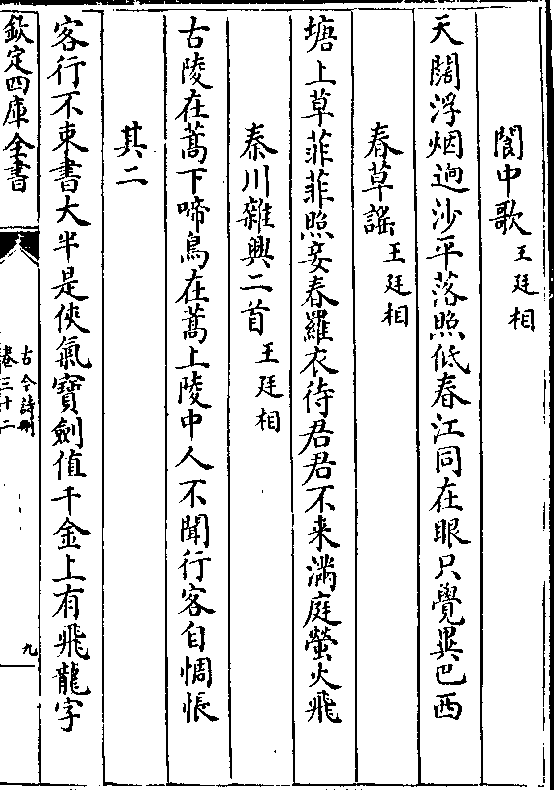 閬中歌王廷相
天闊浮烟逈沙平落照低春江同在眼只覺異巴西
春草謡王廷相
塘上草菲菲照妾春羅衣待君君不来滿庭螢火飛
秦川雜興二首王廷相
古陵在蒿下啼鳥在蒿上陵中人不聞行客自惆悵
其二
客行不束書大半是俠氣寶劍值千金上有飛龍字
欽定四庫全書
古今詩刪
卷三十二
九